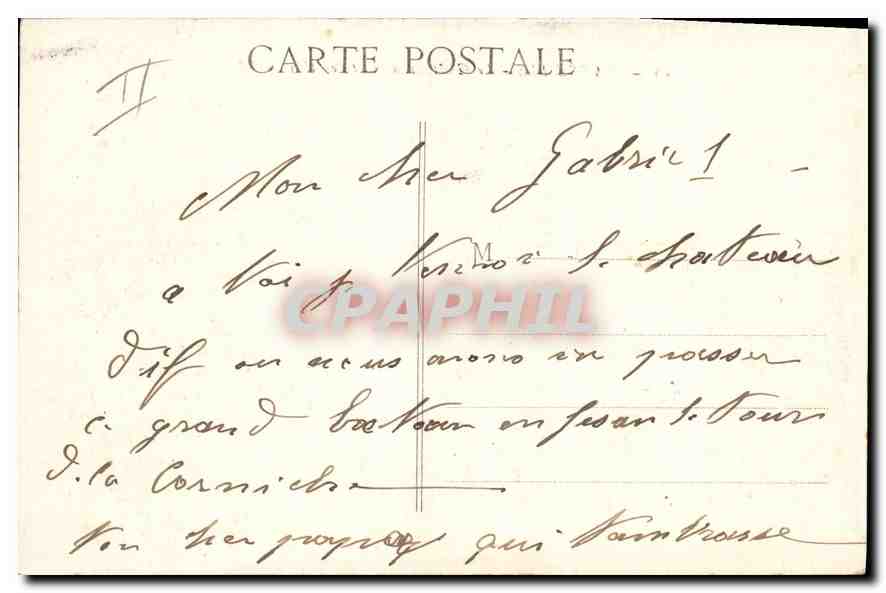 CARTE POSTALE
II
Mon cher Gabriel
M
a toi j' le chateau
d'if ou nous avons vu passer
ce grand batoau en fesan le tour
de la Corniche
ton cher papa qui t'ambrasse
CPAPHIL